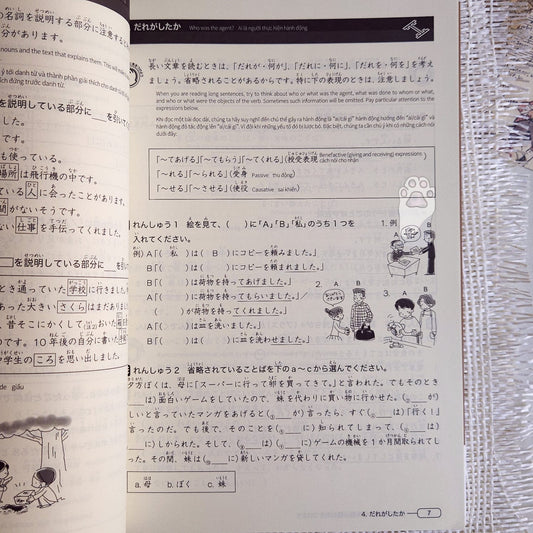 の名詞を説明する部分に注意する
分があります。
nouns and the text that explains them. This will
を説明している部分に___を引いて
も使っている。
場所は飛行機の中です。
ている人に会ったことがあります。
間がないそうです。
ない仕事を手伝ってくれました。
を説明している部分に___を
とき通っていた学校に行きました
あった大きいさくらはまだありま
、昔そこにかくして
のです。10年後の自分に書いた
学生のころを思い出しました。
だれがしたか Who was the agent? Ai là người thực hiện hành động
長い文章を読むときは、「だれが・何が」、「だれに・何に」、「だれを・何を」を考え
ましょう。省略されることがあるからです。特に下の表現のときは、注意しましょう。
When you are reading long sentences, try to think about who or what was the agent, what was done to whom or what,
and who or what were the objects of the verb. Sometimes such information will be omitted. Pay particular attention to
the expressions below.
Khi đọc một bài đọc dài, chúng ta hãy suy nghĩ đến chủ thể gây ra hành động là “ai/cái gì” hành động hướng đến “ai/cái gì” và
hành động đó tác động lên “ai/cái gì”. Vì đôi khi những yếu tố đó bị lược bỏ. Đặc biệt, chúng ta cần chú ý khi có những cách nói
dưới đây:
「~てあげる」「~てもらう」「~てくれる」(授受表現 Benefactive (giving and receiving) expressions
cách nói cho nhận)
「~れる」「~られる」(受身 Passive: thụ động)
「~せる」「~させる」(使役 Causative: sai khiến)
れんしゅう1 絵を見て、( )に「A」「B」「私」のうち1つを
入れてください。
例)A「( 私 )は( B )にコピーを頼みました。」
B「( )は( )にコピーを頼まれました。」
B「( )は荷物を持ってあげました。」
A「( )に荷物を持ってもらいました。」/
「( )が荷物を持ってくれました。」
A「( )は皿を洗いました。」
B「( )は( )に皿を洗わせました。」
1. 例
A
B
2. A
B
3. A
B
れんしゅう2 省略されていることばを下のa~cから選んでください。
ぼくは、母に「スーパーに行って卵を買ってきて。」と言われた。でもそのとき
は)面白いゲームをしていたので、妹を代わりに買い物に行かせた。(② が)
しいと言っていたマンガをあげると( が)言ったら、すぐ( は)「行く!」
言ったのだ。でも後で、そのことを( に)知られてしまって、( は)
に)しかられた。そして、( は)( に)ゲームの機械を1か月間取られてし
った。その間、妹は( に)新しいマンガを貸してくれた。
a. 母 b. ぼく c. 妹
4. だれがしたか 7